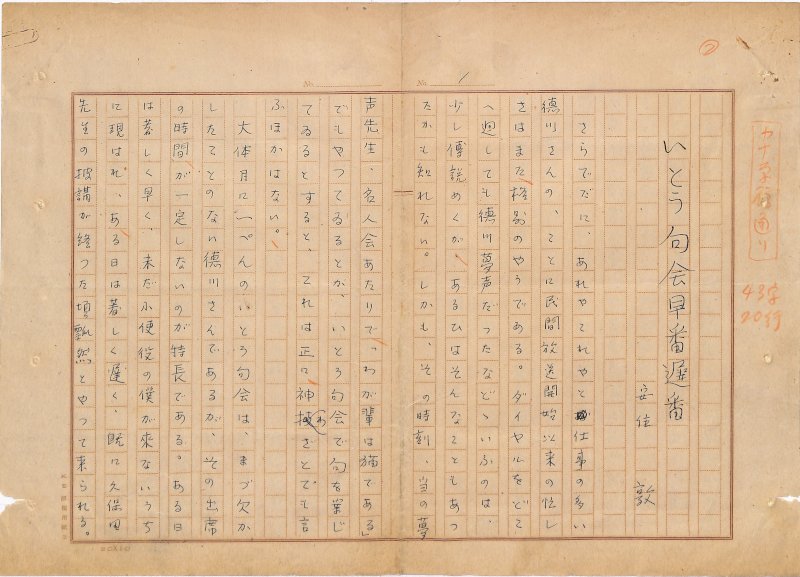 No. 1
いとう句会早番遅番
安住 敦
さらでだに、あれやこれやと仕事の多い
徳川さんの、ことに民間放送開始以来の忙し
さはまた格別のやうである。ダイヤルをどこ
へ廻しても徳川夢声だつたなどゝいふのは、
少し傳説めくが、あるひはそんなこともあつ
たかも知れない。しかも、その時刻、当の夢
声先生、名人会あたりで「わが輩は猫である」
でもやつてゐるとか、いとう句会で句を案じ
てゐるとすると、これは正に神わざとでも言
ふほかはない。
大体月に一ぺんのいとう句会は、まづ欠か
したことのない徳川さんであるが、その出席
の時間が一定しないのが特長である。ある日
は著しく早く、未だ小使役の僕が來ないうち
に現はれ、ある日は著しく遅く、既に久保田
先生の披講が終つた頃飄然とやつて来られる。
No.
カナ原稿通り
43字
20行
20×20